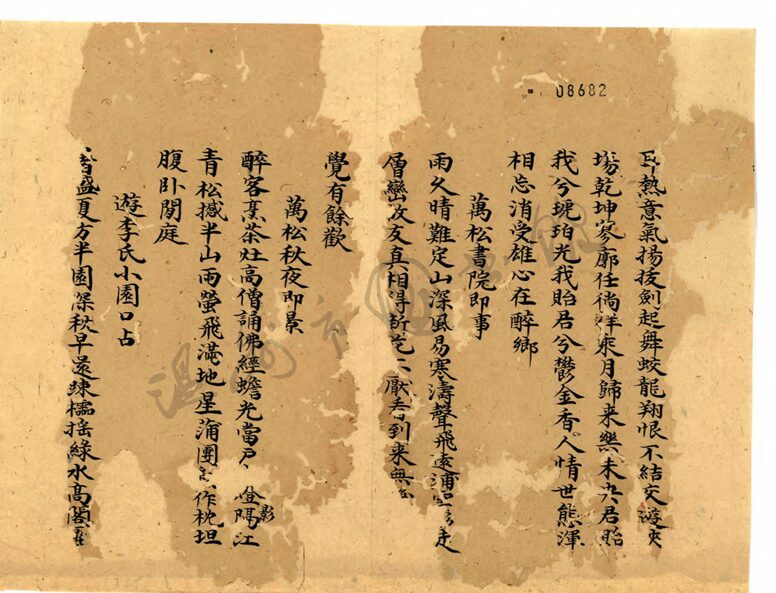 08682
耳熱意氣揚拔劍起舞蛟龍翔恨不結交遊俠
場乾坤寥廓任徜徉乘月歸來樂未央君貽
我兮琥珀光我貽君兮鬱金香人情世態渾
相忘消受雄心在醉鄉
萬松書院即事
雨久晴難定山深風易寒濤聲飛遠浦走
層巒汝友真相得厭看到來無
覺有餘歡
萬松秋夜即景
醉客烹茶灶高僧誦佛經蟾光當戶燈隔江
影
青松撼半山雨螢飛滿地星蒲團作枕坦
腹臥閒庭
遊李氏小園口占
盛夏方半園深秋早還疎櫺搖綠水高閣